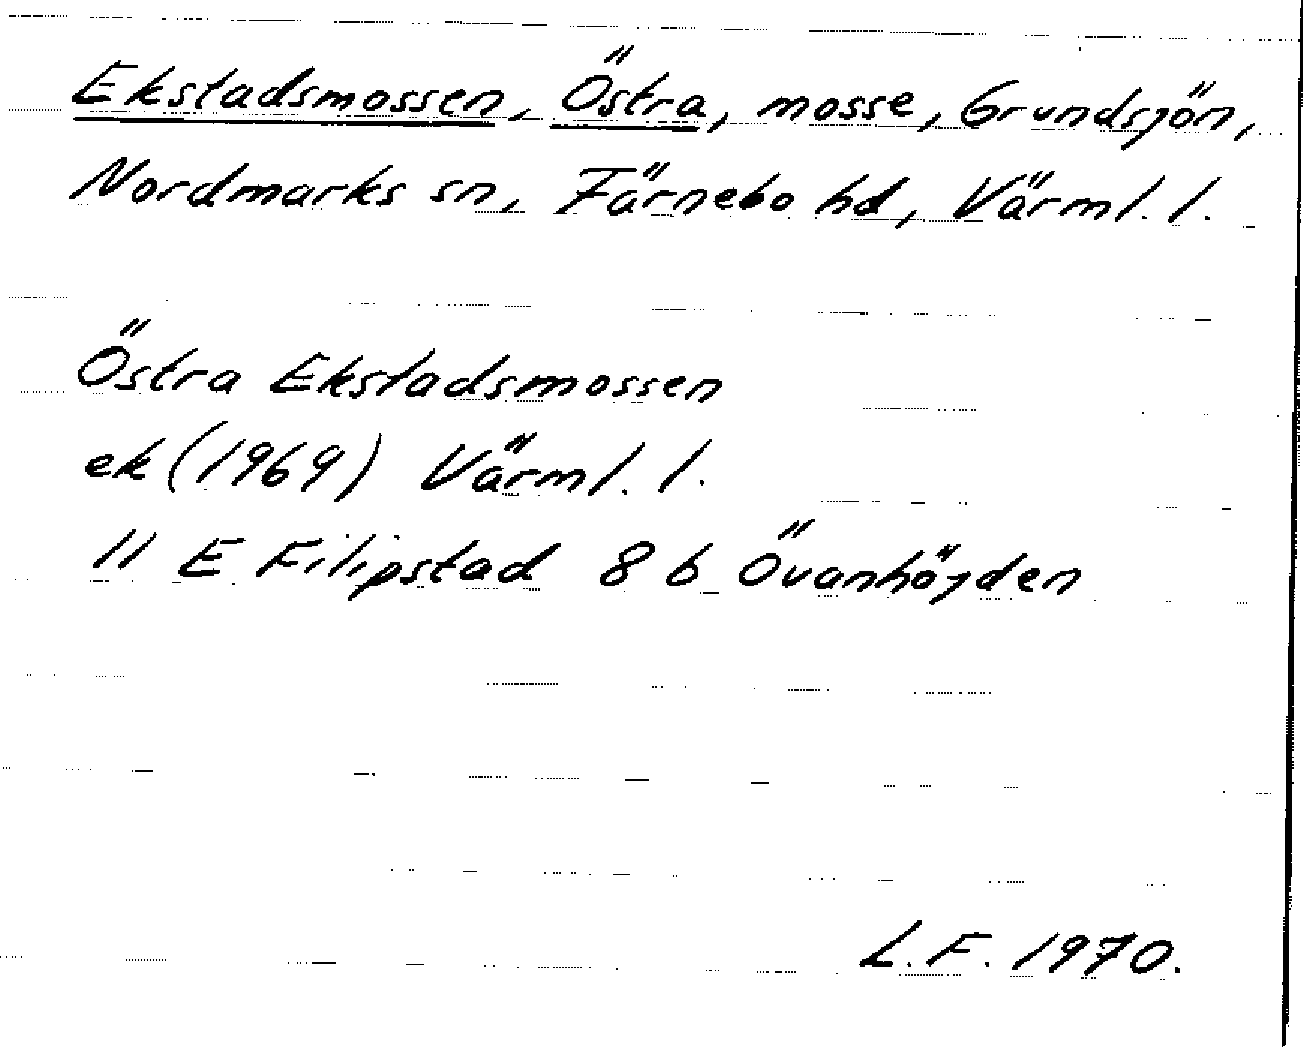 Ekstadsmossen, Östra, mosse, Grundsjön,
Nordmarks sn, Färnebo hd, Värml. l.
Östra Ekstadsmossen
ek (1969) Värml. l.
11 E Filipstad 8 b Övanhöjden
L.F. 1970.